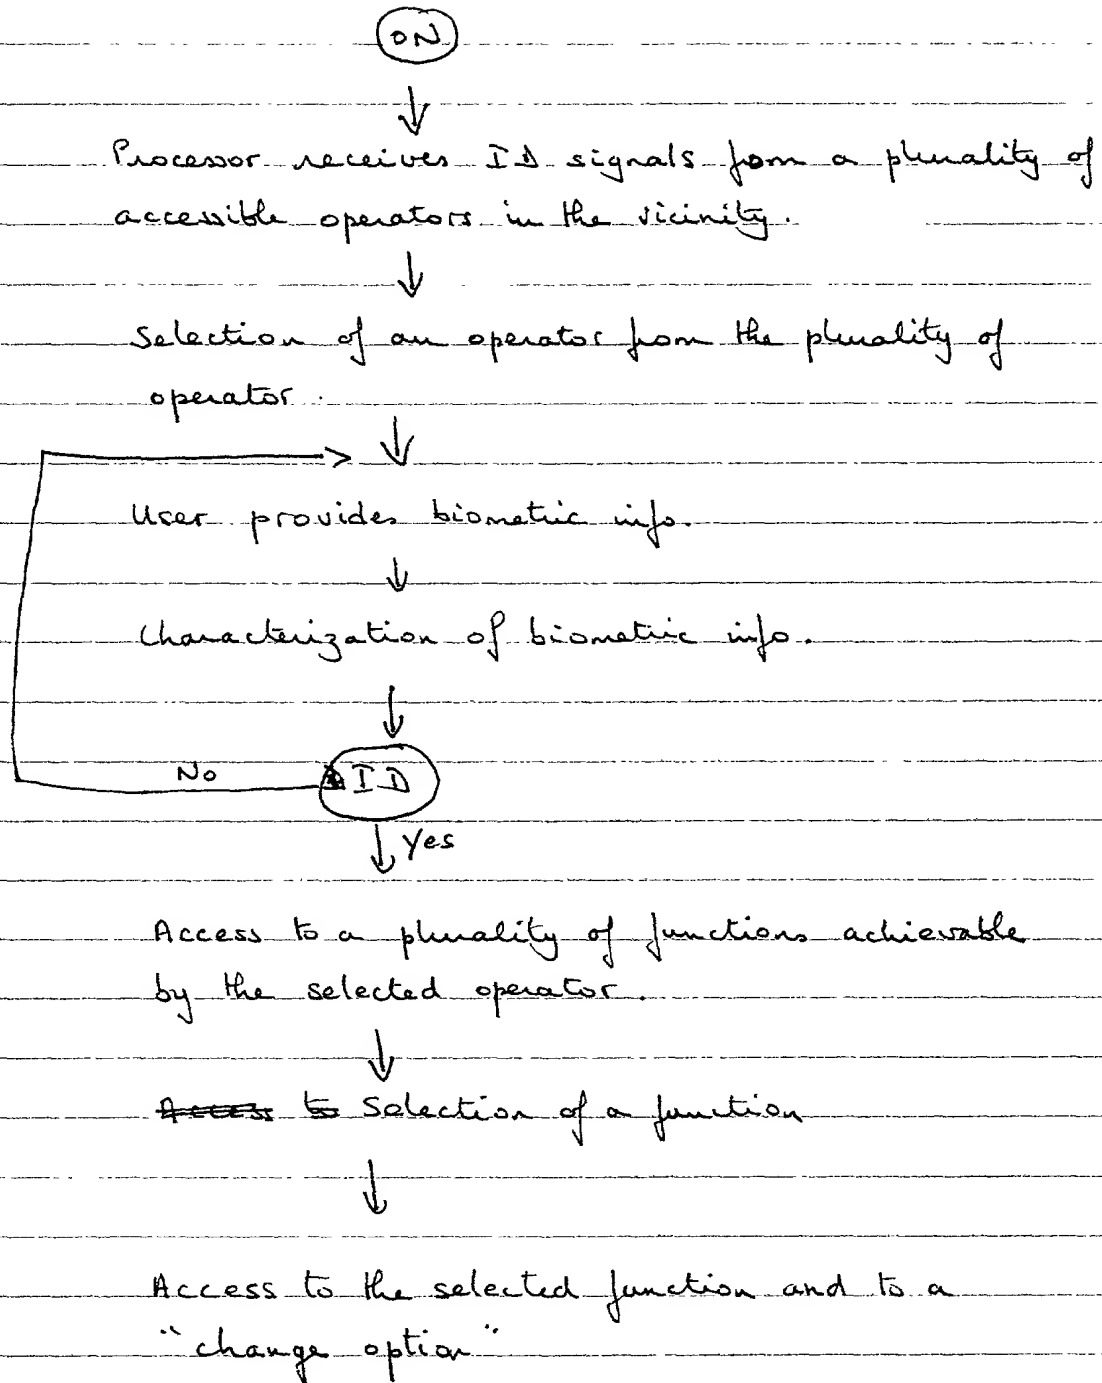 ON
Processor receives ID signals from a plurality of
accessible operators in the vicinity.
Selection of an operator from the plurality of
operator.
User provides biometric info.
Characterization of biometric info.
No
ID
Yes
Access to a plurality of functions achievable
by the selected operator.
Access to Selection of a function
Access to the selected function and to a
"change option"